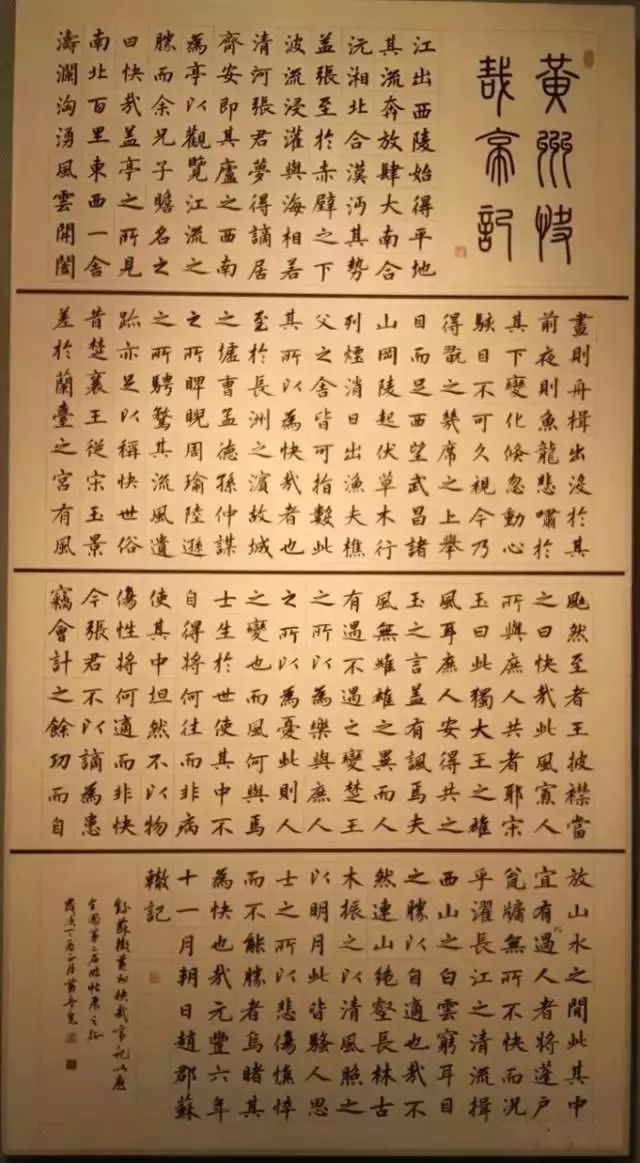 黃州快
哉亭記
江出西陵始得平地
其流奔放肆大南合
沅湘北合漢沔其勢
益張至於赤壁之下
波流浸灌與海相若
清河張君夢得謫居
齊安即其廬之西南
為亭以觀覽江流之
勝而余兄子瞻名之
曰快哉蓋亭之所見
南北百里東西一舍
濤瀾洶湧風雲開闔
晝則舟楫出沒於其
前夜則魚龍悲嘯於
其下變化倏忽動心
駭目不可久視今乃
得翫之幾席之上舉
目而足西望武昌諸
山岡陵起伏草木行
列煙消日出漁夫樵
父之舍皆可指數此
其所以為快哉者也
至於長洲之濱故城
之墟曹孟德孫仲謀
之所睥睨周瑜陸遜
之所騁騖其流風遺
跡亦足以稱快世俗
昔楚襄王從宋玉景
差於蘭臺之宮有風
颯然至者王披襟當
之曰快哉此風寡人
所與庶人共者耶宋
玉曰此獨大王之雄
風耳庶人安得共之
玉之言蓋有諷焉夫
風無雌雄之異而人
有遇不遇之變楚王
之所以為樂與庶人
之所以為憂此則人
之變也而風何與焉
士生於世使其中不
自得將何往而非病
使其中坦然不以物
傷性將何適而非快
今張君不以謫為患
竊會計之餘功而自
放山水之間此其中
宜有過人者將蓬戶
甕牖無所不快而況
乎濯長江之清流揖
西山之白雲窮耳目
之勝以自適也哉不
然連山絕壑長林古
木振之以清風照之
以明月此皆騷人思
士之所以悲傷憔悴
而不能勝者烏睹其
為快也哉元豐六年
十一月朔日趙郡蘇
轍記
錄蘇轍黃州快哉亭記以應
全國第二屆臨帖展之征